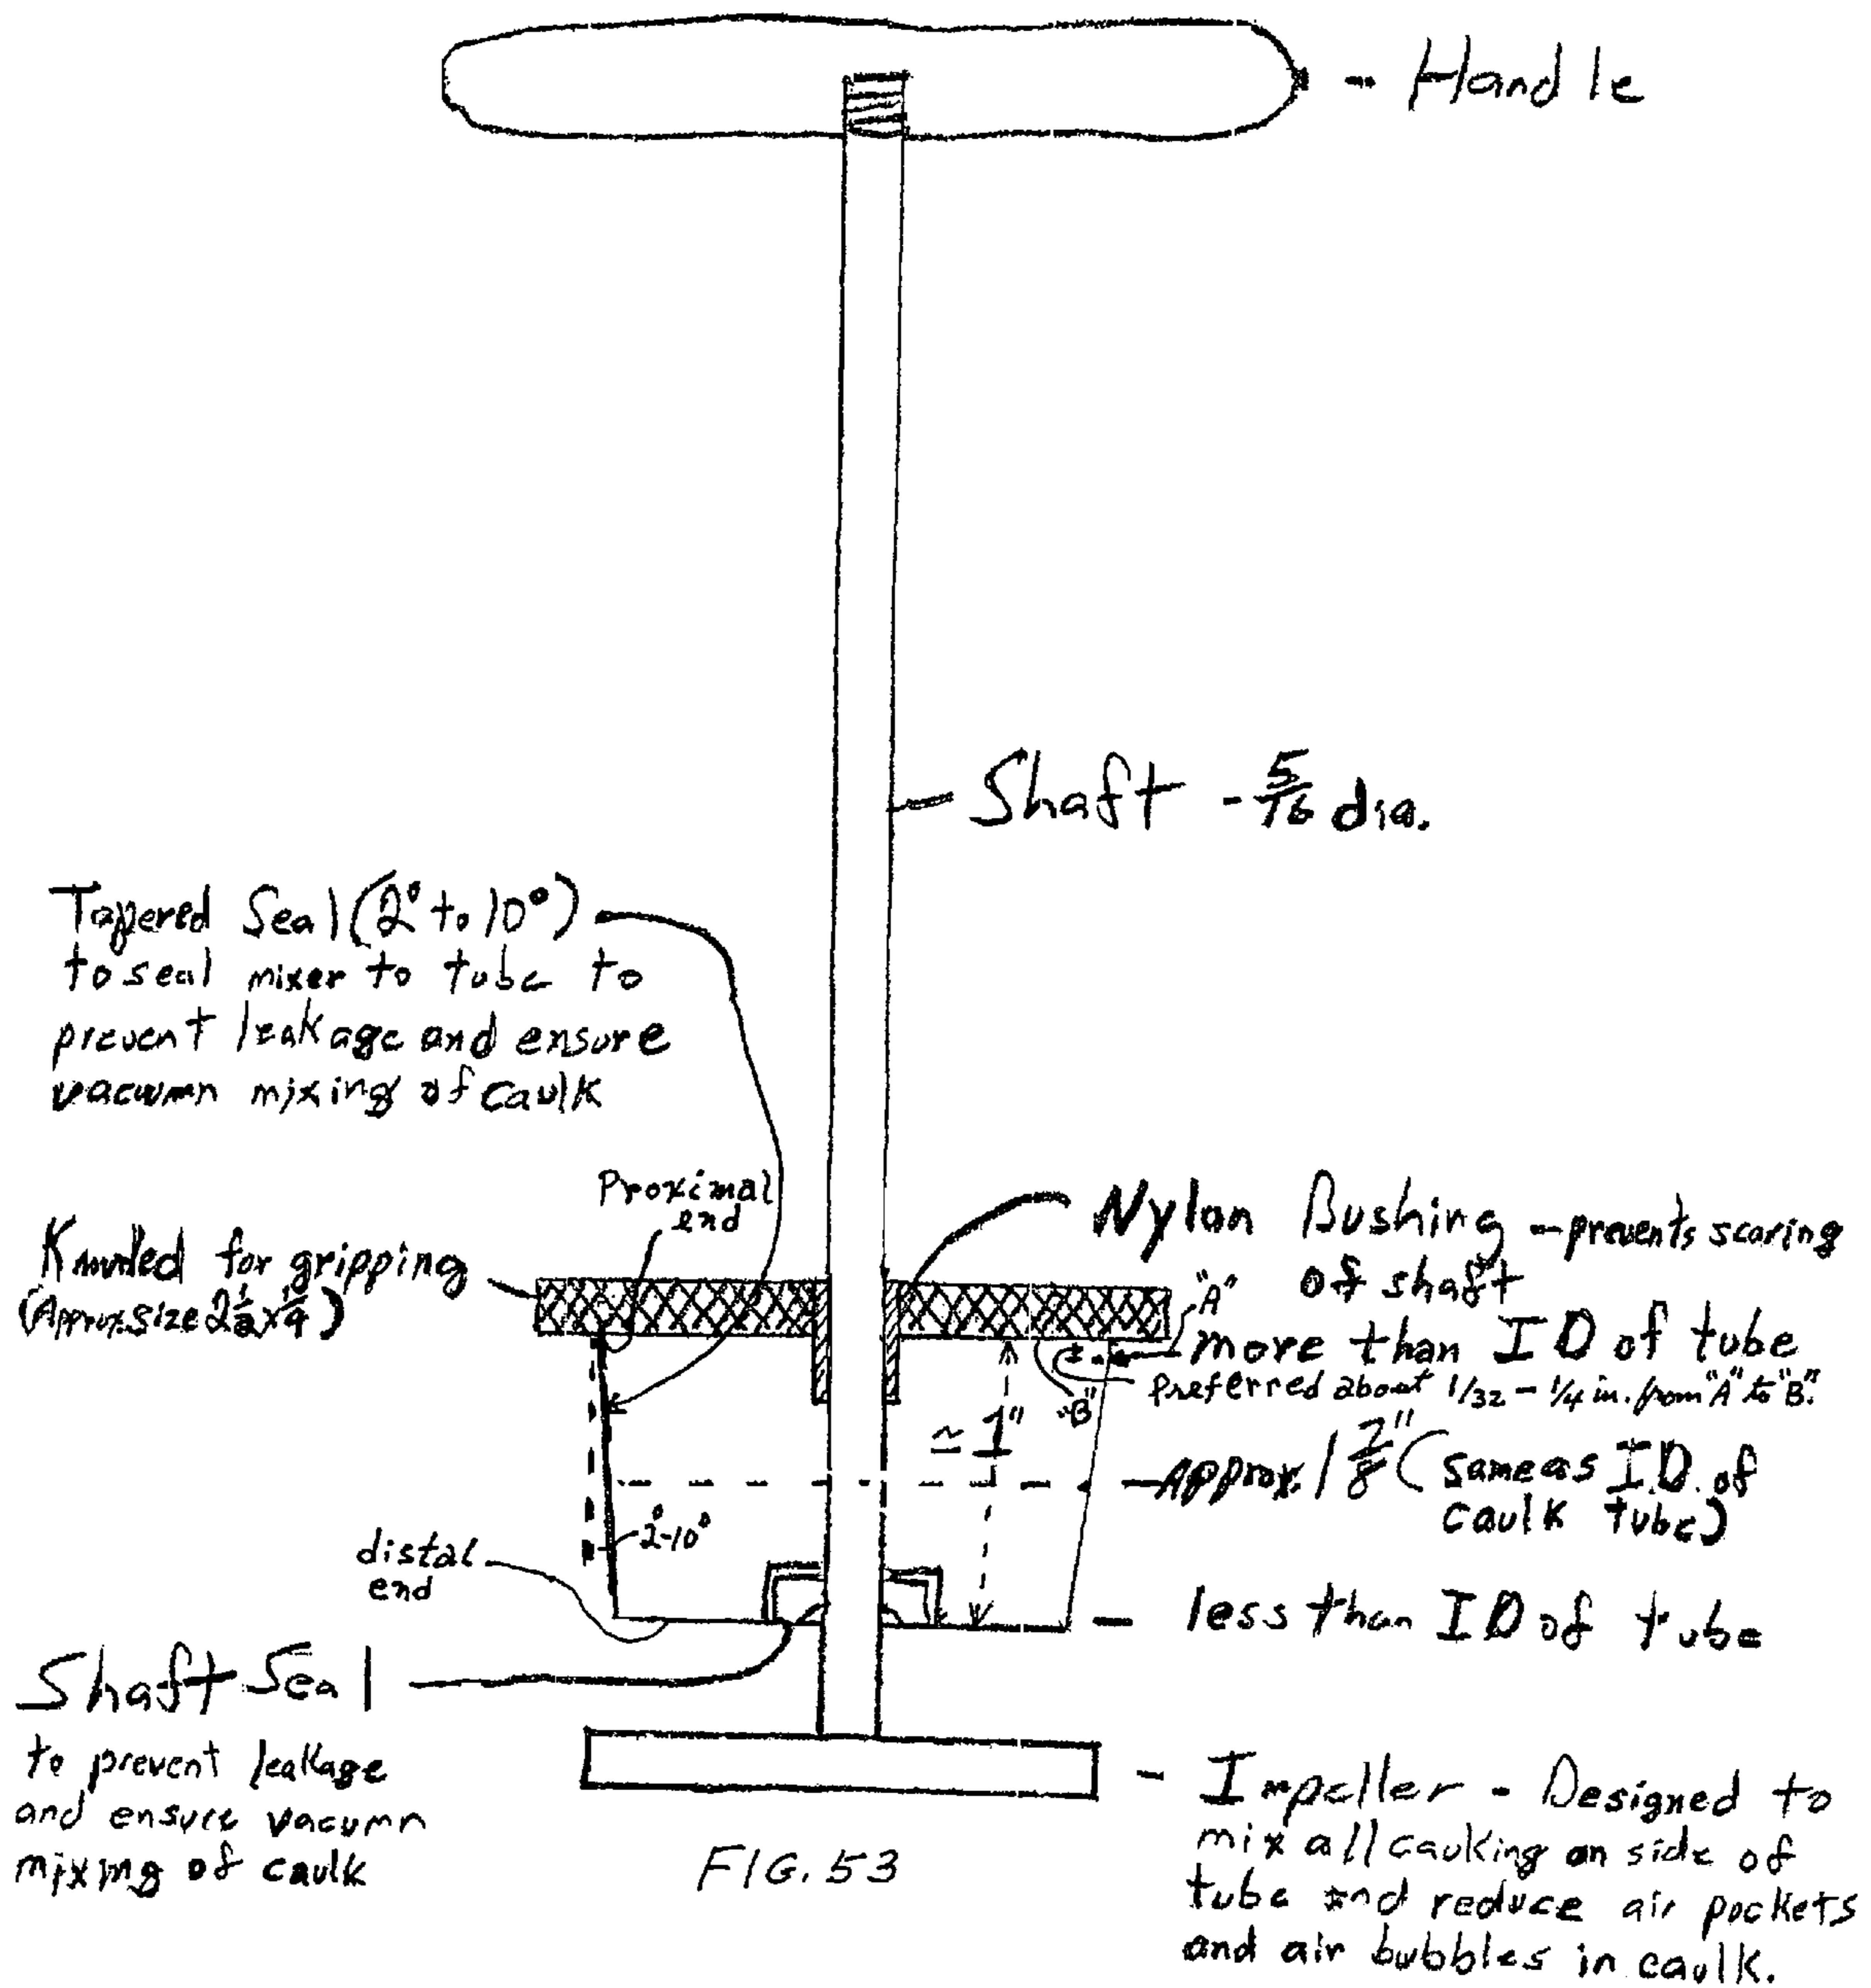 - Handle
Shaft - 5/16 dia.
Tapered Seal (2° to 10°)
to seal mixer to tube to
prevent leakage and ensure
vacumn mixing of caulk
Proximal
end
Knurled for gripping
(Approx. size 2 1/2 x 1/4)
Nylon Bushing - prevents scoring
of shaft
"A"
more than ID of tube
preferred about 1/32 - 1/4 in. from "A" to "B".
"B"
≃ 1"
Approx. 1 7/8" (same as I.D. of
caulk tube)
2°-10°
distal
end
- less than ID of tube
Shaft Seal
to prevent leakage
and ensure vacumn
mixing of caulk
- Impeller - Designed to
mix all caulking on side of
tube and reduce air pockets
and air bubbles in caulk.
FIG. 53